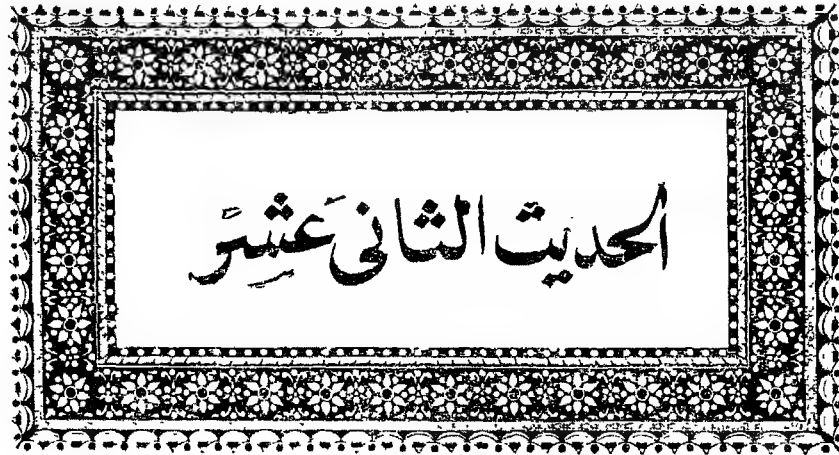 الحديث الثانى عشر